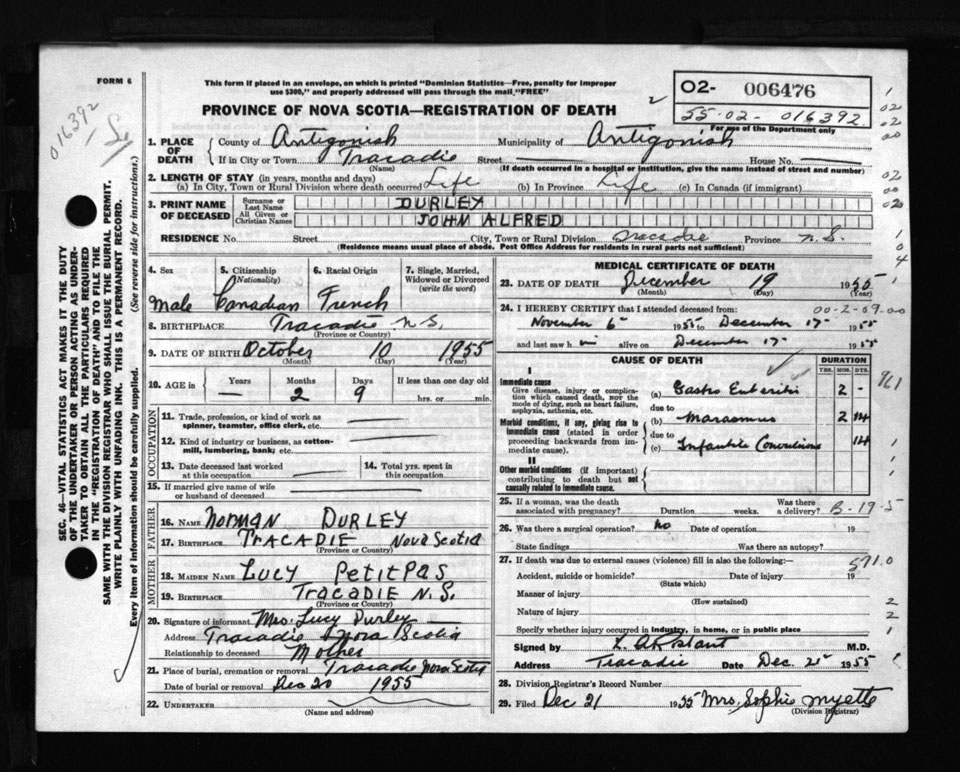 FORM 6
This form if placed in an envelope, on which is printed "Dominion Statistics—Free, penalty for improper
use $300," and property addressed will pass through the mail "FREE"
PROVINCE OF NOVA SCOTIA—REGISTRATION OF DEATH
02- 006476
55-02-016392
For use of the Department only
016392
1. PLACE OF DEATH
County of Antigonish Municipality of Antigonish
If in City or Town Tracadie Street House No.
(Name) (If death occurred in a hospital or institution, give the name instead of street and number)
2. LENGTH OF STAY (in years, months and days)
(a) In City, Town or Rural Division where death occurred Life (b) In Province Life (c) In Canada (if immigrant)
3. PRINT NAME OF DECEASED
Surname or Last Name DURLEY
All Given or Christian Names JOHN ALFRED
RESIDENCE No. Street City, Town or Rural Division Tracadie Province N.S.
(Residence means usual place of abode. Post Office Address for residents in rural parts not sufficient)
4. Sex 5. Citizenship (Nationality) 6. Racial Origin 7. Single, Married, Widowed or Divorced (write the word)
Male Canadian French
8. BIRTHPLACE Tracadie N.S.
(Province or Country)
9. DATE OF BIRTH October 10 1955
(Month) (Day) (Year)
10. AGE in Years Months Days If less than one day old
— 2 9 hrs. or min.
OCCUPATION
11. Trade, profession, or kind of work as
spinner, teamster, office clerk, etc.
12. Kind of industry or business, as cotton-
mill, lumbering, bank; etc.
13. Date deceased last worked
at this occupation
14. Total yrs. spent in
this occupation
15. If married give name of wife
or husband of deceased
FATHER
16. NAME NORMAN DURLEY
17. BIRTHPLACE TRACADIE NOVA SCOTIA
(Province or Country)
MOTHER
18. MAIDEN NAME LUCY PETITPAS
19. BIRTHPLACE TRACADIE N.S.
(Province or Country)
20. Signature of informant Mrs. Lucy Durley
Address Tracadie Nova Scotia
Relationship to deceased Mother
21. Place of burial, cremation or removal Tracadie Nova Scotia
Date of burial or removal Dec 20 1955
22. UNDERTAKER
(Name and address)
MEDICAL CERTIFICATE OF DEATH
23. DATE OF DEATH December 19 1955
(Month) (Day) (Year)
24. I HEREBY CERTIFY that I attended deceased from:
00-2-09.00
November 6 1955 to December 17 1955
and last saw h im alive on December 17 1955
CAUSE OF DEATH DURATION
YRS. MOS. DYS.
I
Immediate cause
Give disease, injury or complica-
tion which caused death, NOT the
mode of dying, such as heart failure,
asphyxia, asthenia, etc.
(a) Gastro Enteritis 2 —
due to
Morbid conditions, if any, giving rise to
immediate cause (stated in order
proceeding backwards from im-
mediate cause).
(b) Marasmus 2 14
due to
(c) Infantile Convulsions 14
II
Other morbid conditions (if important)
contributing to death but not
causally related to immediate cause.
25. If a woman, was the death
associated with pregnancy? Duration weeks. Was there
a delivery? B-19-5
26. Was there a surgical operation? No Date of operation 19
State findings Was there an autopsy?
27. If death was due to external causes (violence) fill in also the following:—
571.0
Accident, suicide or homicide? Date of injury 19
(State which)
Manner of injury
(How sustained)
Nature of injury
Specify whether injury occurred in industry, in home, or in public place
Signed by M.D.
Address Tracadie Date Dec. 21 1955
28. Division Registrar's Record Number
29. Filed Dec 21 1955 Mrs. Sophie Myette
(Division Registrar)
SEC. 46—VITAL STATISTICS ACT MAKES IT THE DUTY
OF THE UNDERTAKER OR PERSON ACTING AS UNDER-
TAKER TO OBTAIN ALL THE PARTICULARS REQUIRED
IN THE "REGISTRATION OF DEATH" AND TO FILE THE
SAME WITH THE DIVISION REGISTRAR WHO SHALL ISSUE THE BURIAL PERMIT.
WRITE PLAINLY WITH UNFADING INK. THIS IS A PERMANENT RECORD.
Every item of information should be carefully supplied. (See reverse side for instructions.)